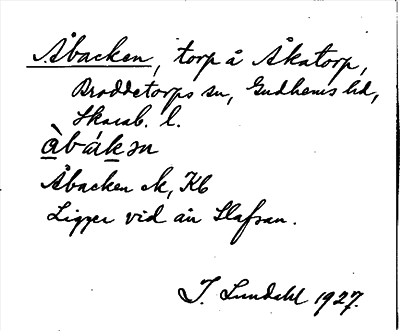 Åbacken, torp å Åkatorp,
Broddetorps sn, Gudhems hd,
Skarab. l.
àbák ən
Åbacken ek, Kb
Ligger vid ån Slafsan.
I. Lundahl 1927.